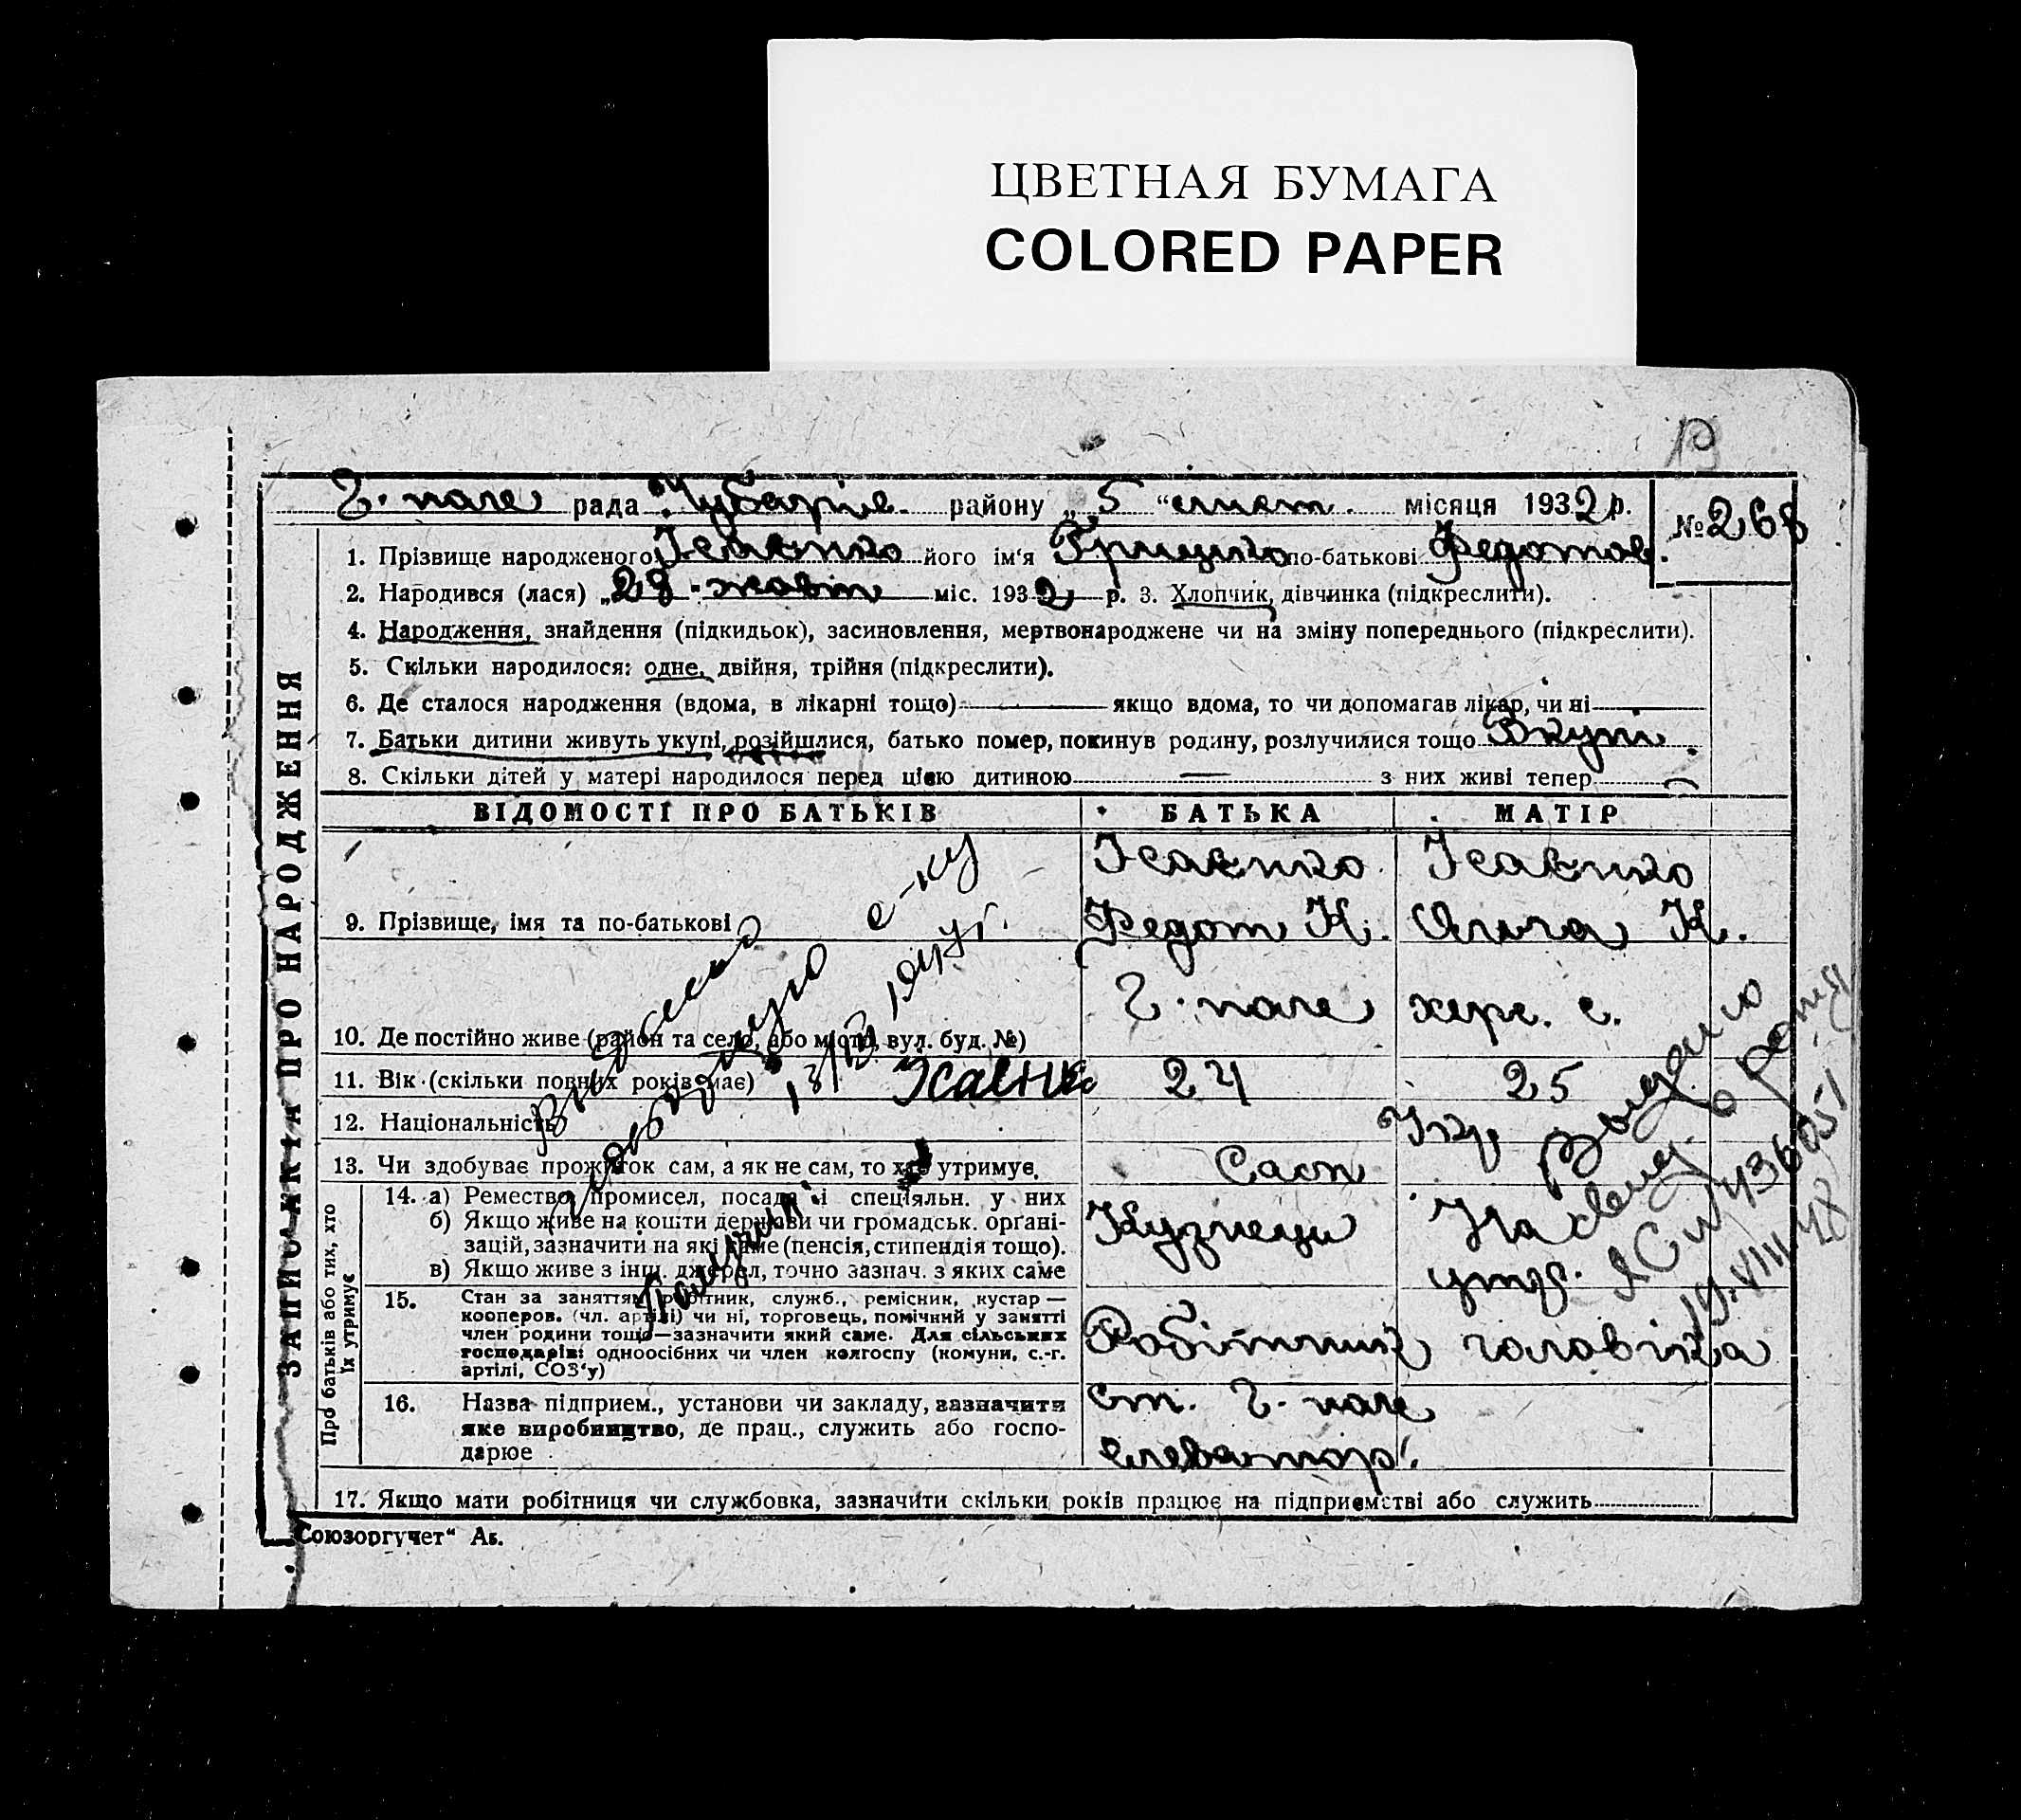 ЦВЕТНАЯ БУМАГА
COLORED PAPER
Г. поле рада Чубарів. району „5“ лист. місяця 1932 р. № 268
1. Прізвище народженого Ісаєнко його ім‘я Грицько по-батькові Федотов.
2. Народився (лася) „29 жовт міс. 1932 р. 3. Хлопчик, дівчинка (підкреслити).
4. Народження, знайдення (підкидьок), засиновлення, мертвонароджене чи на зміну попереднього (підкреслити).
5. Скільки народилося: одне, двійня, трійня (підкреслити).
6. Де сталося народження (вдома, в лікарні тощо) — якщо вдома, то чи допомагав лікар, чи ні
7. Батьки дитини живуть укупі, розійшлися, батько помер, покинув родину, розлучилися тощо Вкупі
8. Скільки дітей у матері народилося перед цією дитиною — з них живі тепер —
ЗАПИС АКТА ПРО НАРОДЖЕННЯ
ВІДОМОСТІ ПРО БАТЬКІВ БАТЬКА МАТІР
Ісаєнко Ісаєнко
9. Прізвище, імя та по-батькові Федот К. Ольга К.
10. Де постійно живе (район та село, або місто, вул. буд. №) Г. поле херс. с.
11. Вік (скільки повних років має) 24 25
Ісаєнко
12. Національність Укр
13. Чи здобуває прожиток сам, а як не сам, то хто утримує. Сам
Про батьків або тих, хто їх утримує
14. а) Ремество, промисел, посада і спеціяльн. у них
б) Якщо живе на кошти держави чи громадськ. орґані-
зацій, зазначити на які саме (пенсія, стипендія тощо).
в) Якщо живе з інш. джерел, точно зазнач. з яких саме
Кузнець На
утр.
15. Стан за заняттям робітник, служб., ремісник, кустар —
кооперов. (чл. артілі) чи ні, торговець, помічний у занятті
член родини тощо—зазначити який саме. Для сільських
господарів: одноосібних чи член колгоспу (комуни, с.-г.
артілі, СОЗ‘у)
Робітник чоловіка
16. Назва підприєм., установи чи закладу, зазначити
яке виробництво, де прац., служить або госпо-
дарює
ст. Г. поле
елеватор.
17. Якщо мати робітниця чи службовка, зазначити скільки років працює на підприємстві або служить
Союзоргучет“ Аб.
Выдано
свид. о рожд
19.VIII 48